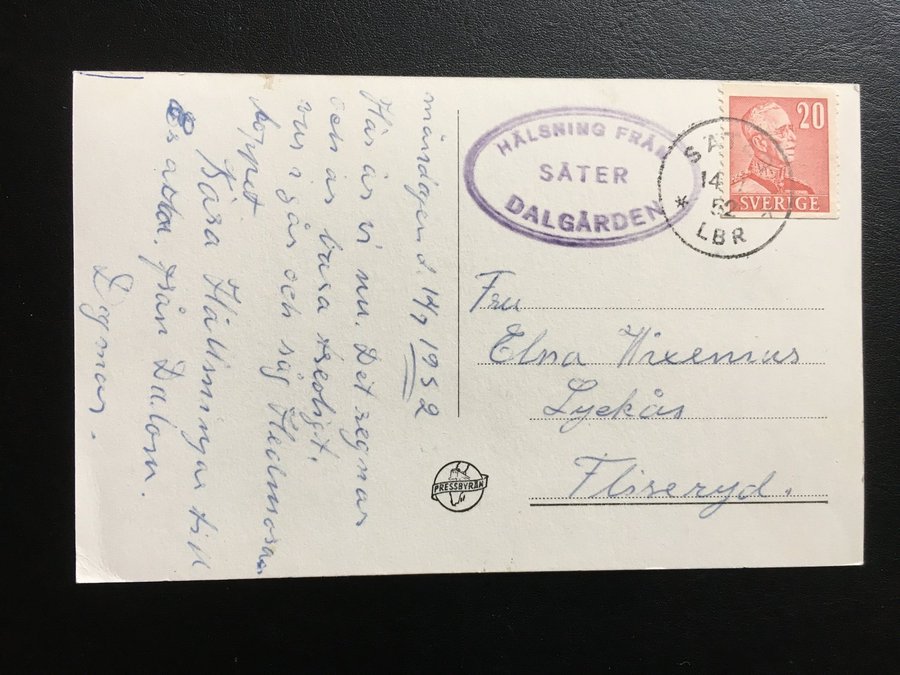 måndagen d. 14/7 1952
Här är vi nu. Det regnar
och är bara treoligt.
var i går och såg Hedmora
hoppet.
Kära Hälsningar till
Er alla. från Dalom.
Dagmar.
HÄLSNING FRÅN
SÄTER
DALGÅRDEN
SÄT
14
52
LBR
20
SVERIGE
Fru
Elna Wixenius
Lyckås
Fliseryd.
PRESSBYRÅN